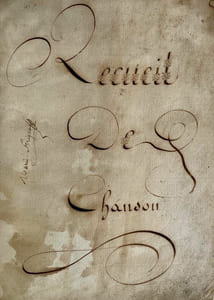 Recueil
De
Chanson